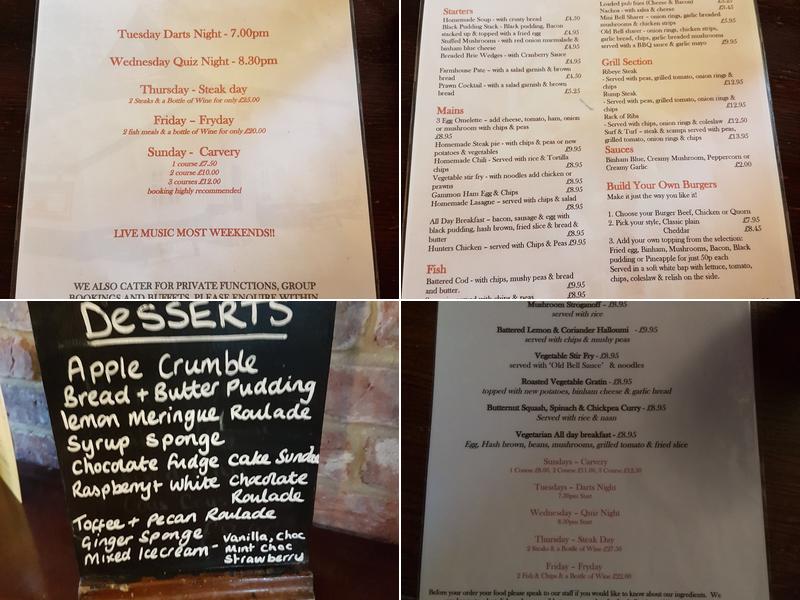 Tuesday Darts Night - 7.00pm
Wednesday Quiz Night - 8.30pm
Thursday - Steak day
2 Steaks & a Bottle of Wine for only £25.00
Friday – Fryday
2 fish meals & a bottle of Wine for only £20.00
Sunday - Carvery
1 course £7.50
2 course £10.00
3 courses £12.00
booking highly recommended
LIVE MUSIC MOST WEEKENDS!!
WE ALSO CATER FOR PRIVATE FUNCTIONS, GROUP
BOOKINGS AND BUFFETS. PLEASE ENQUIRE WITHIN
Starters
Homemade Soup - with crusty bread £4.50
Black Pudding Stack - Black pudding, Bacon
stacked up & topped with a fried egg £4.95
Stuffed Mushrooms - with red onion marmalade &
binham blue cheese £4.95
Breaded Brie Wedges - with Cranberry Sauce
£4.95
Farmhouse Pate – with a salad garnish & brown
bread £4.50
Prawn Cocktail – with a salad garnish & brown
bread £5.25
Mains
3 Egg Omelette – add cheese, tomato, ham, onion
or mushroom with chips & peas
£8.95
Homemade Steak pie - with chips & peas or new
potatoes & vegetables £9.95
Homemade Chili - Served with rice & Tortilla
chips £8.95
Vegetable stir fry - with noodles add chicken or
prawns £8.95
Gammon Ham Egg & Chips £8.95
Homemade Lasagne – served with chips & salad
£8.95
All Day Breakfast – bacon, sausage & egg with
black pudding, hash brown, fried slice & bread &
butter £8.95
Hunters Chicken – served with Chips & Peas £9.95
Fish
Battered Cod - with chips, mushy peas & bread
and butter. £8.95
£8.95
Loaded pub fries (Cheese & Bacon)
Nachos - with salsa & cheese £3.45
Mini Bell Sharer – onion rings, garlic breaded
mushrooms & chicken strips £5.95
Old Bell sharer - onion rings, chicken strips,
garlic bread, chips, garlic breaded mushrooms
served with a BBQ sauce & garlic mayo £9.95
Grill Section
Ribeye Steak
- Served with peas, grilled tomato, onion rings &
chips £12.95
Rump Steak
- Served with peas, grilled tomato, onion rings &
chips £12.95
Rack of Ribs
- Served with chips, onion rings & coleslaw £12.50
Surf & Turf – steak & scampi served with peas,
grilled tomato, onion rings & chips £13.95
Sauces
Binham Blue, Creamy Mushroom, Peppercorn or
Creamy Garlic £2.00
Build Your Own Burgers
Make it just the way you like it!
1. Choose your Burger Beef, Chicken or Quorn
2. Pick your style, Classic plain £7.95
Cheddar £8.45
3. Add your own topping from the selection:
Fried egg, Binham, Mushrooms, Bacon, Black
pudding or Pineapple for just 50p each
Served in a soft white bap with lettuce, tomato,
chips, coleslaw & relish on the side.
DESSERTS
Apple Crumble
Bread + Butter Pudding
lemon Meringue Roulade
Syrup Sponge
Chocolate fudge cake Sundae
Raspberry + White Chocolate
Roulade
Toffee + Pecan Roulade
Ginger Sponge
Mixed Icecream - Vanilla, Choc
Mint Choc
Strawberry
Mushroom Stroganoff – £8.95
served with rice
Battered Lemon & Coriander Halloumi - £9.95
served with chips & mushy peas
Vegetable Stir Fry - £8.95
served with 'Old Bell Sauce' & noodles
Roasted Vegetable Gratin - £8.95
topped with new potatoes, binham cheese & garlic bread
Butternut Squash, Spinach & Chickpea Curry - £8.95
Served with rice & naan
Vegetarian All day breakfast - £8.95
Egg, Hash brown, beans, mushrooms, grilled tomato & fried slice
Sundays – Carvery
1 Course £8.00, 2 Course £11.00, 3 Course £12.50
Tuesdays – Darts Night
7.30pm Start
Wednesday – Quiz Night
8.30pm Start
Thursday – Steak Day
2 Steaks & a Bottle of Wine £27.50
Friday – Fryday
2 Fish & Chips & a Bottle of Wine £22.00
Before your order your food please speak to our staff if you would like to know about our ingredients. We